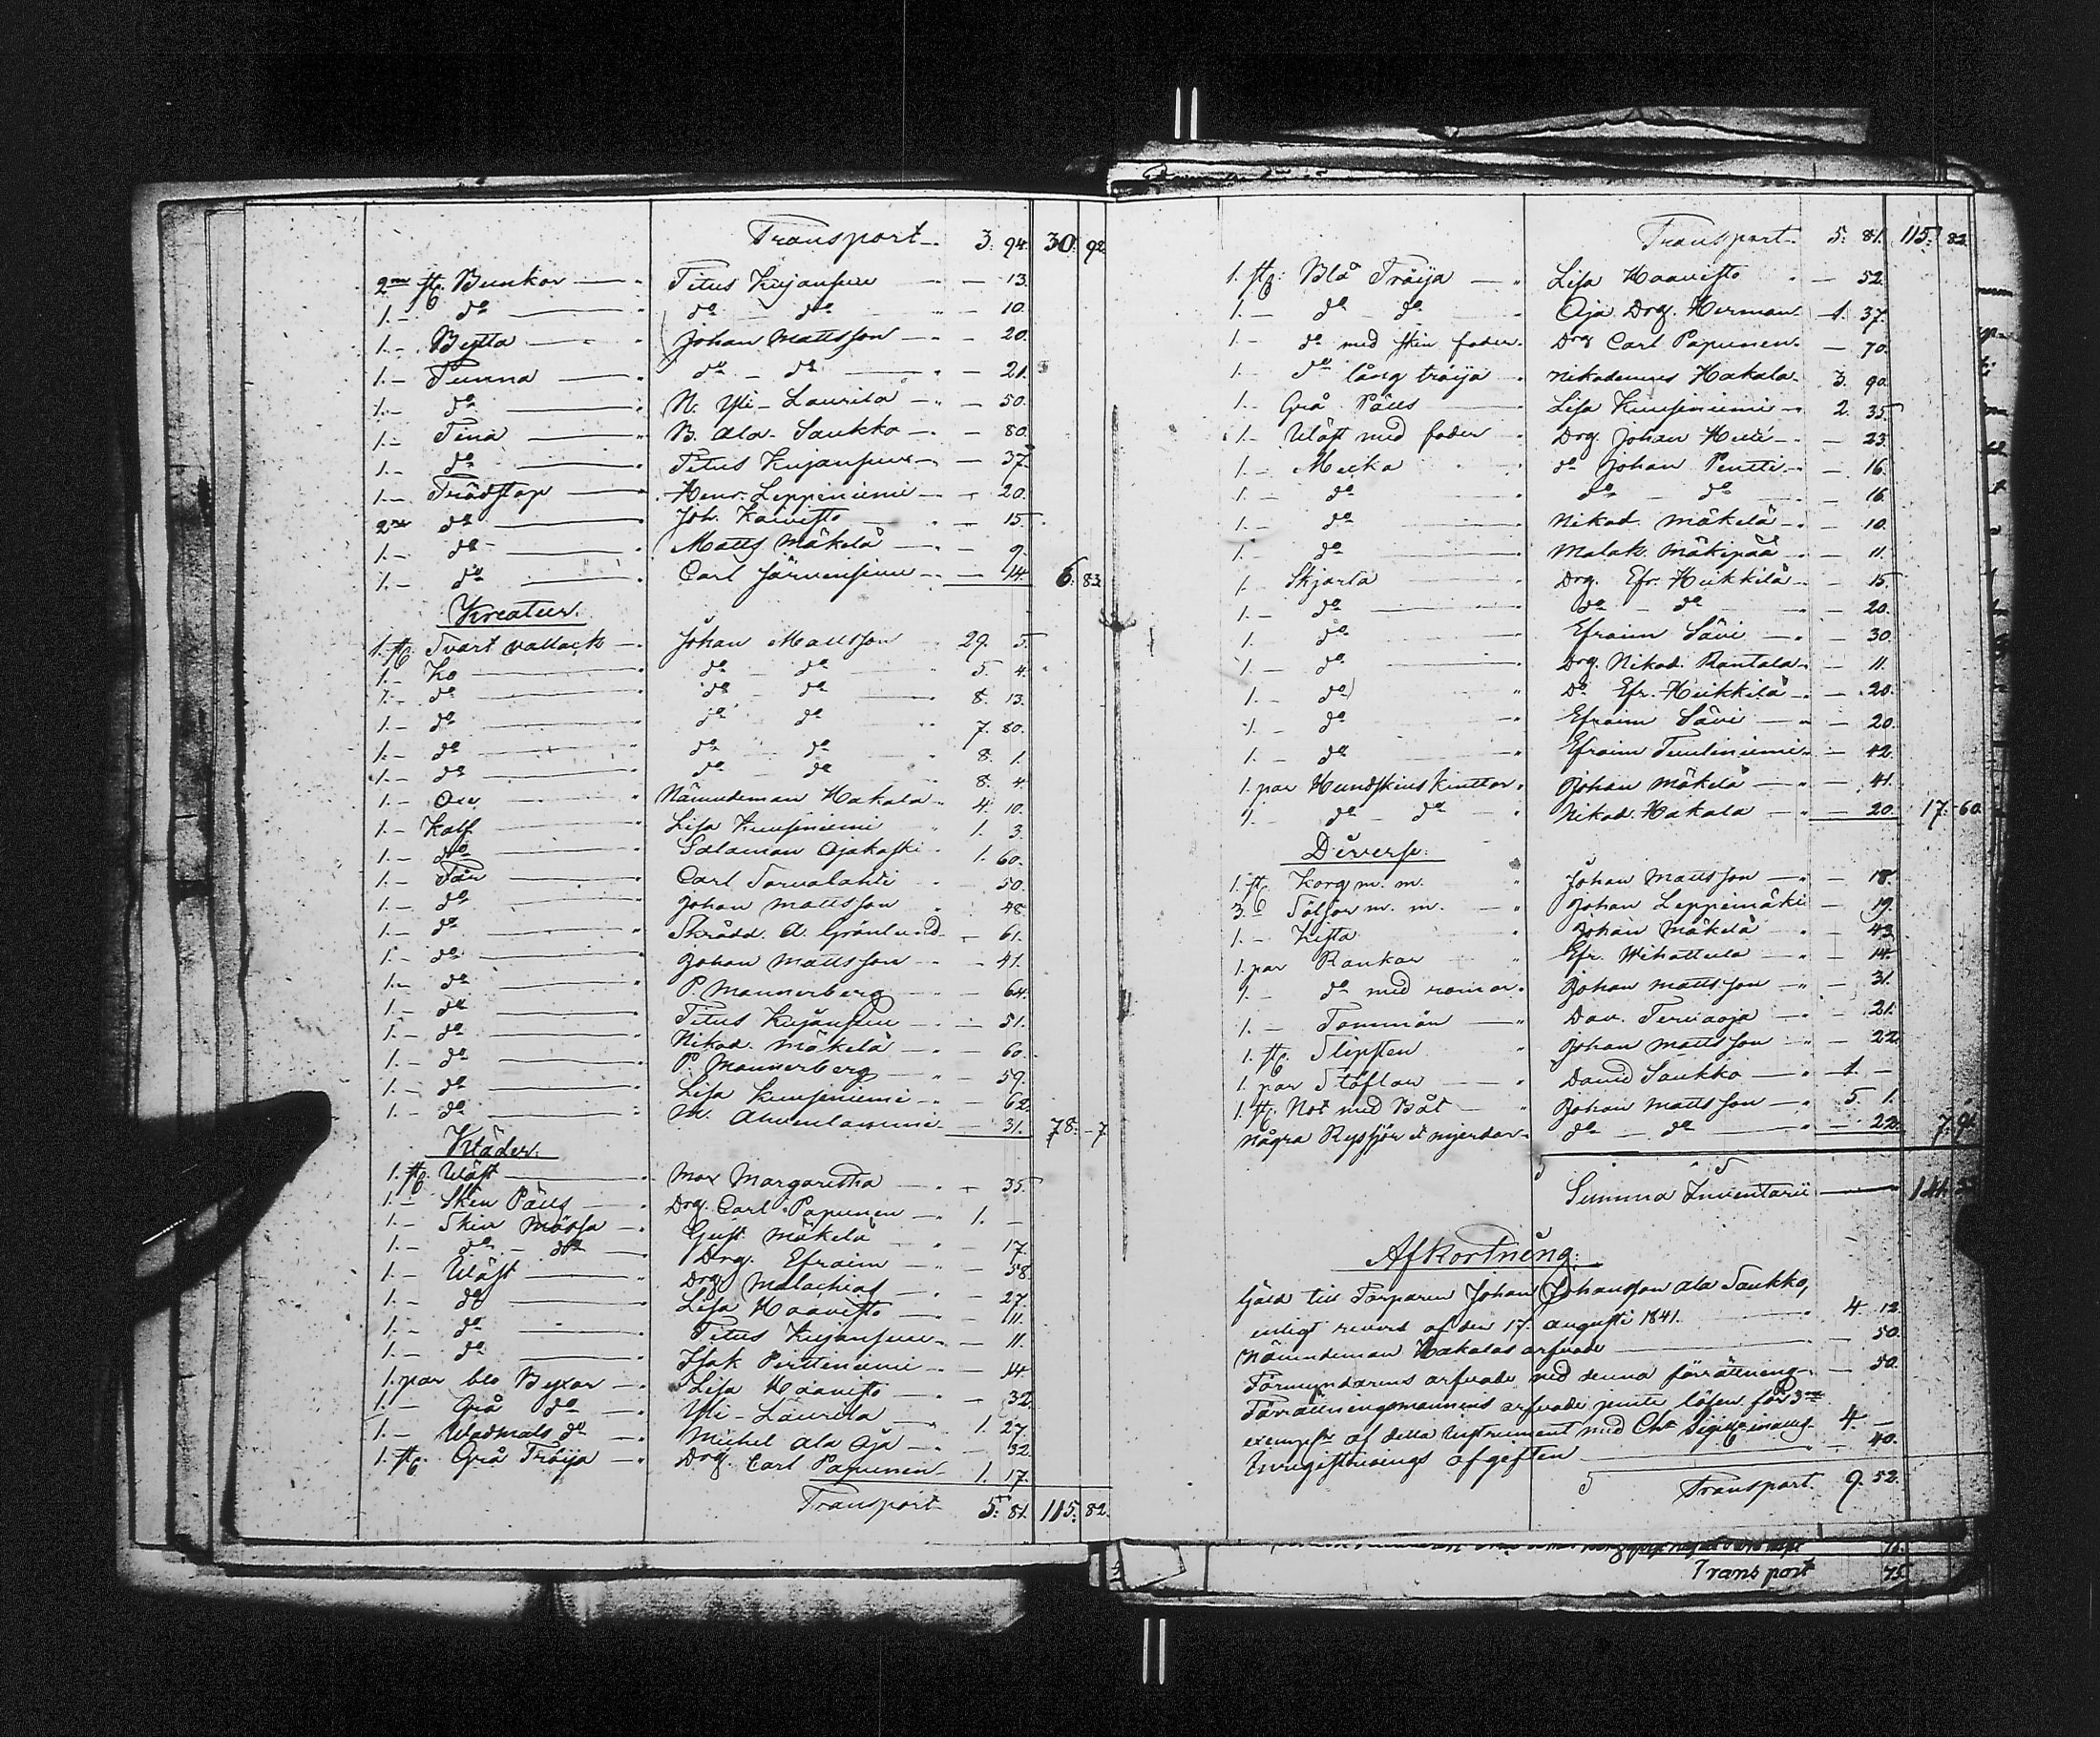 Transport 3. 94. 30. 92
2ne st. Bunkar Titus Kujanpuu 13.
1. do do do 10.
1. Bytta Johan Mattsson 20.
1. Tunna do do 21.
1. do N. Yli-Laurila 50.
1. Tina B. Ala-Saukko 80.
1. do Titus Kujanpuu 37.
1. Trädstop Henr. Leppiniemi 20.
2ne do Joh. Koivisto 15.
1. do Matts Mäkelä 9.
1. do Carl Järvenpuu 14. 6. 83
Kreatur.
1. st. Svart vallack Johan Mattsson 29. 5.
1. Ko do do 5. 4.
1. do do do 8. 13.
1. do do do 7. 80.
1. do do do 8. 1.
1. do do do 8. 4.
1. Oxe Nämndeman Hakala 4. 10.
1. Kalf Lisa Kuusiniemi 1. 3.
1. do Salamon Ojakoski 1. 60.
1. Får Carl Torvalahti 50.
1. do Johan Mattsson 48.
1. do Skrädd. A. Grönlund 61.
1. do Johan Mattsson 41.
1. do P. Mannerberg 64.
1. do Titus Kujanpuu 51.
1. do Nikod. Mäkelä 60.
1. do P. Mannerberg 59.
1. do Lisa Kuusiniemi 62.
1. do 31. 78. 7
Kläder.
1. st. Wäst Margaretha 35.
1. Skin Päls Drg. Carl Papunen 1. –
1. Skin Mössa Gust. Mäkelä 17.
1. do do Drg. Efraim 58
1. Wäst Drg. Malachias 27.
1. do Lisa Haavisto 11.
1. do Titus Kujanpuu 11.
1. do Isak Pirttiniemi 14
1. par blå Byxor Lisa Haavisto 32
1. Grå do Yli-Laurila 1. 27
1. Wadmals do Michel Ala Oja 32.
1. st. Grå Tröija Drg. Carl Papunen 1. 17.
Transport 5. 81. 115. 82.
Transport 5. 81. 115. 82.
1. st. Blå Tröija Lisa Haavisto 52.
1. do do Oja Drg. Herman 1. 37.
1. do med skin foder Drg Carl Papunen 70.
1. do lång tröija Nikodemus Hakala 3. 90.
1. Grå Päls Lisa Kuusiniemi 2. 35
1. Wäst med foder Drg. Johan 23.
1. Mecko do Johan Pentti 16.
1. do do do 16.
1. do Nikod. Mäkelä 10.
1. do Malak. Mäkipää 11.
1. Skjorta Drg. Efr. Heikkilä 15.
1. do do do 20.
1. do Efraim Sävi 30.
1. do Drg. Nikod. Rantala 11.
1. do Do Efr. Heikkilä 20.
1. do Efraim Sävi 20.
1. do Efraim 42.
1. par Hundskins Kinttor Johan Mäkelä 41.
1. do do Nikod. Hakala 20. 17. 60.
Diverse.
1. st. Korg m. m. Johan Mattsson 18.
3. m. m. Johan Leppemäki 19.
1. Kista Johan Mäkelä 43
1. par Rankor Efr. 14.
1. do med Johan Mattsson 31.
1. Tömmön Dav. Tervaoja 21.
1. st. Slipsten Johan Mattsson 22
1. par Stöflar David Saukko 1. –
1. st. Not med Båt Johan Mattsson 5 1.
Några Rysjor et mjerdar do do 22. 7.
Summa Inventarii 144.
Afkortning:
Gäld till Torparen Johan Johansson Ala Saukko,
enligt revers af den 17. augusti 1841. 4. 12
Nämndeman Hakalas arfvode 50.
Förmyndarens arfvode vid denna förrättning 50.
Förrättningsmannens arfvode jemte lösen för 3ne
exempl. af detta Instrument med Cht. Sigill. 4. –
Inregistrerings afgiften 40.
Transport. 9. 52.
Transport 75